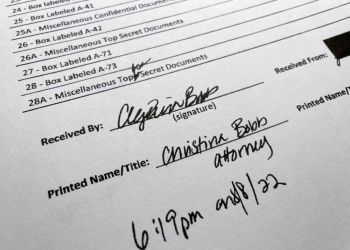 24 - Box Labeled A-41
25 - Box Labeled A-41
25A - Miscellaneous Confidential Documents
26 - Box Labeled A-42
26A - Miscellaneous Top Secret Documents
27 - Box Labeled A-71
28 - Box Labeled A-73
28A - Miscellaneous Top Secret Documents
Received By:
(signature)
Received From:
Printed Name/Title: Christina Bobb
attorney
Printed Name/
6:19pm on 8/8/22